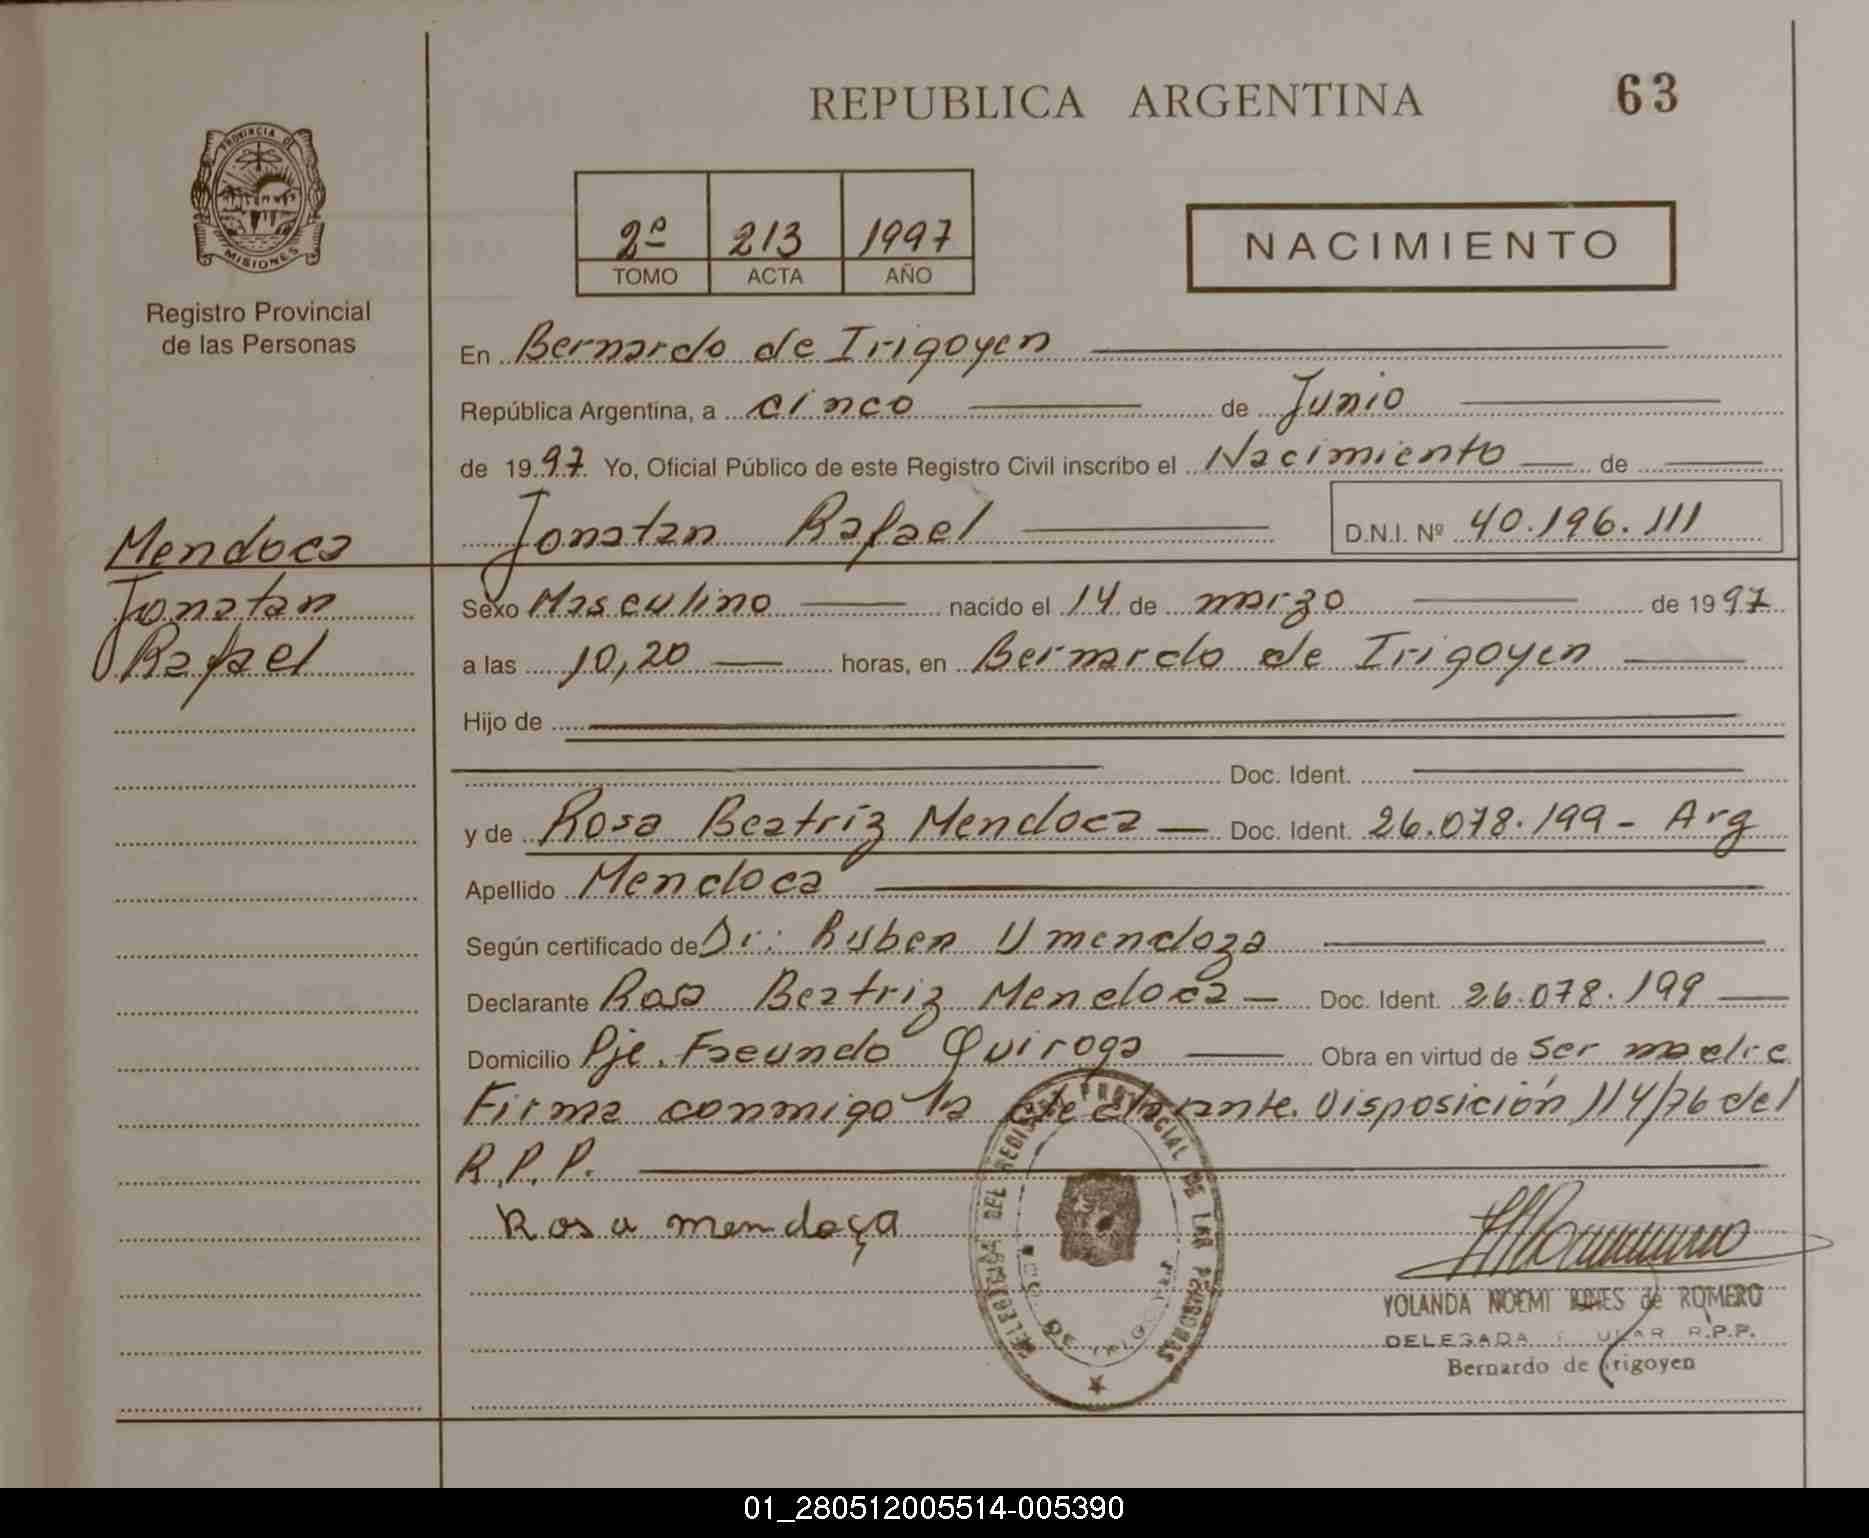 REPUBLICA ARGENTINA
63
PROVINCIA DE
MISIONES
Registro Provincial
de las Personas
2º 213 1997
TOMO ACTA AÑO
NACIMIENTO
En Bernardo de Irigoyen
República Argentina, a cinco de Junio
de 1997 Yo, Oficial Público de este Registro Civil inscribo el Nacimiento de
Jonatan Rafael D.N.I. Nº 40.196.111
Mendoca
Jonatan
Rafael
Sexo Masculino nacido el 14 de marzo de 1997
a las 10,20 horas, en Bernardo de Irigoyen
Hijo de
Doc. Ident.
y de Rosa Beatriz Mendoca Doc. Ident. 26.078.199 - Arg
Apellido Mendoca
Según certificado de Dr: Ruben U mendoza
Declarante Rosa Beatriz Mendoca Doc. Ident. 26.078.199
Domicilio Pje. Facundo Quiroga Obra en virtud de ser madre
Firma conmigo la declarante. Disposición 114/76 del
R.P.P.
Rosa mendoça
DEL REGISTRO PROVINCIAL DE LAS PERSONAS
YOLANDA NOEMI de ROMERO
DELEGADA R.P.P.
Bernardo de Irigoyen
01_280512005514-005390